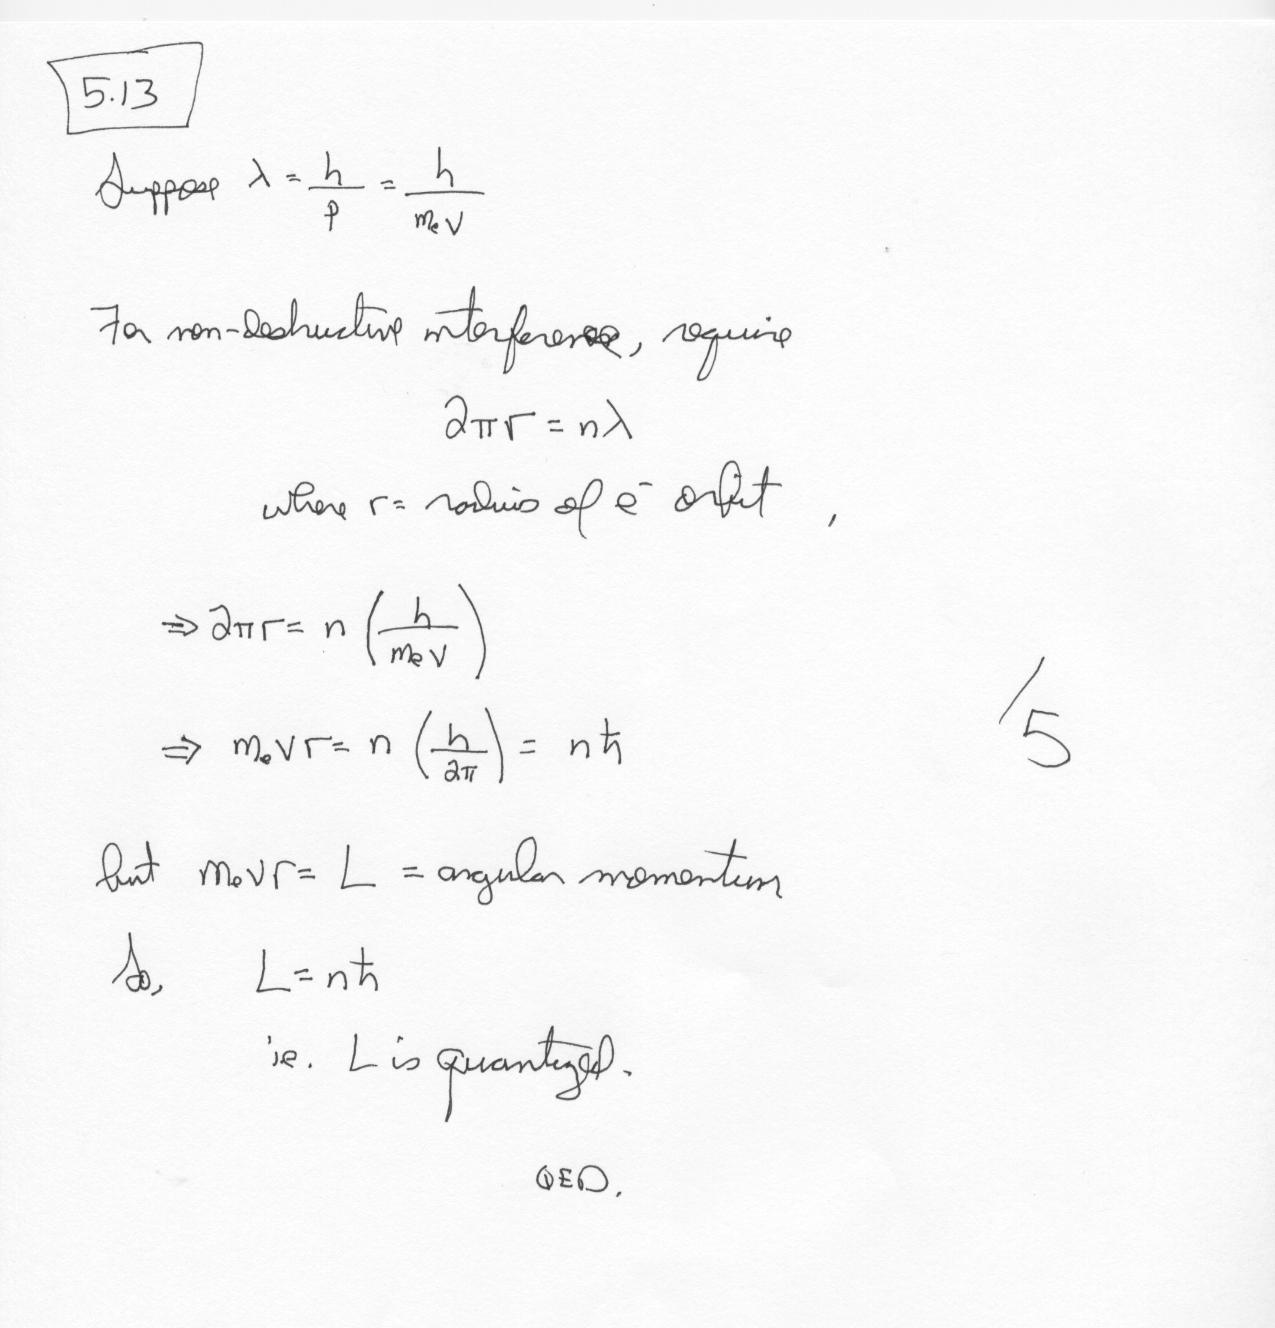 5.13
Suppose λ = h/p = h/mₑv
For non-destructive interference, require
2πr = nλ
where r = radius of e⁻ orbit,
⇒ 2πr = n (h/mₑv)
⇒ mₑvr = n (h/2π) = nħ
/5
but mₑvr = L = angular momentum
So, L = nħ
ie. L is quantized.
QED.